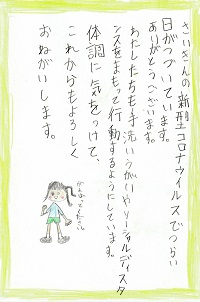 さいきんの新型コロナウイルスでつらい
日がつづいています。
ありがとうございます。
わたしたちも手洗いうがいやソーシャルディスタ
ンスをまもって行動するようにしています。
体調に気をつけて、
これからもよろしく
おねがいします。
がんばってください